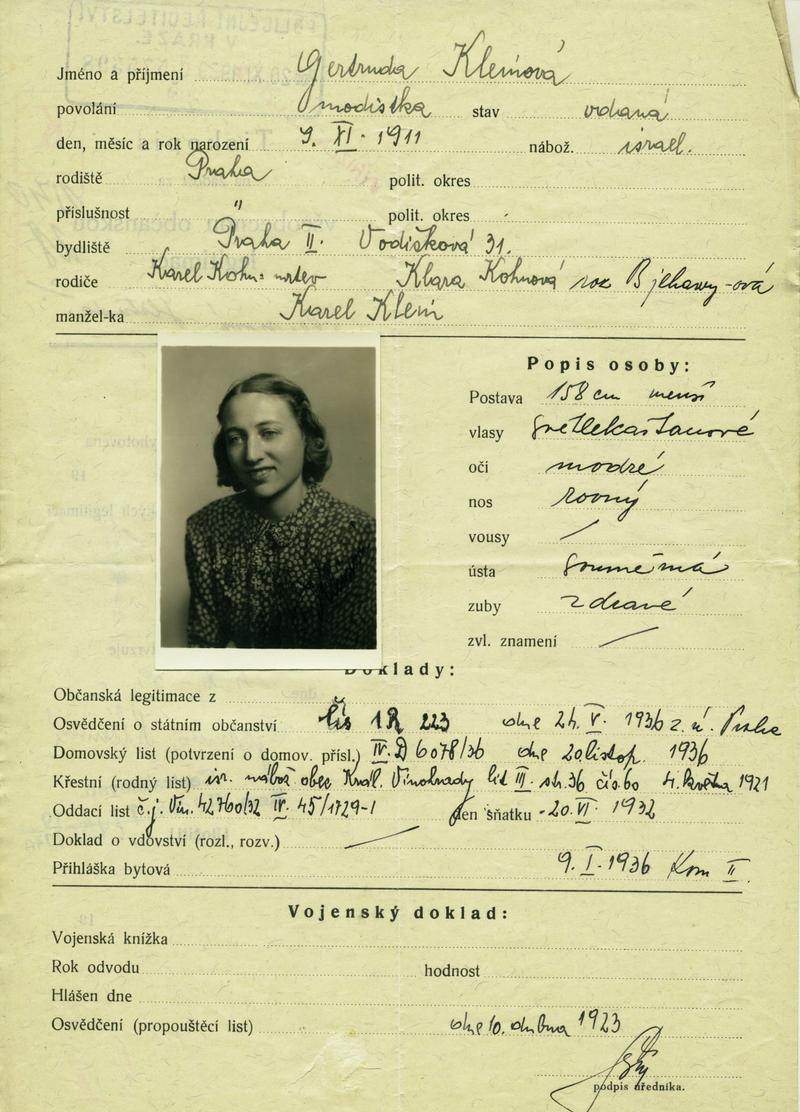 Jméno a příjmení Gertruda Kleinová
povolání modistka stav vdaná
den, měsíc a rok narození 9. XI. 1911 nábož. israel.
rodiště Praha polit. okres
příslušnost " polit. okres
bydliště Praha II. Vodičková 31.
rodiče Karel Kohn - mrtev Klara Kohnová roz.
manžel-ka Karel Klein
Popis osoby:
Postava 158 cm menší
vlasy světlekaštanové
oči modré
nos rovný
vousy
ústa souměrná
zuby zdravé
zvl. znamení
Doklady:
Občanská legitimace z
Osvědčení o státním občanství 223 dne 24. V. 1936 z. ú. Praha
Domovský list (potvrzení o domov. přísl.) IV. D 6078/36 dne 20 listop. 1936
Křestní (rodný list) isr. nábož obec Král. Vinohrady III. str. 36 čís. 60 4. května 1921
Oddací list č.j. Vin. 42760/32 IV. 45/1729-1 den sňatku -20. VI. 1932
Doklad o vdovství (rozl., rozv.)
Přihláška bytová 9. I. 1936 Kom II.
Vojenský doklad:
Vojenská knížka
Rok odvodu hodnost
Hlášen dne
Osvědčení (propouštěcí list) dne 10. dubna 1923
podpis úředníka.